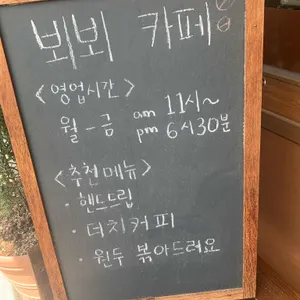 뵈뵈 카페
<영업시간>
월-금 am 11시~
pm 6시30분
<추천메뉴>
· 핸드드립
· 더치커피
· 원두 볶아드려요